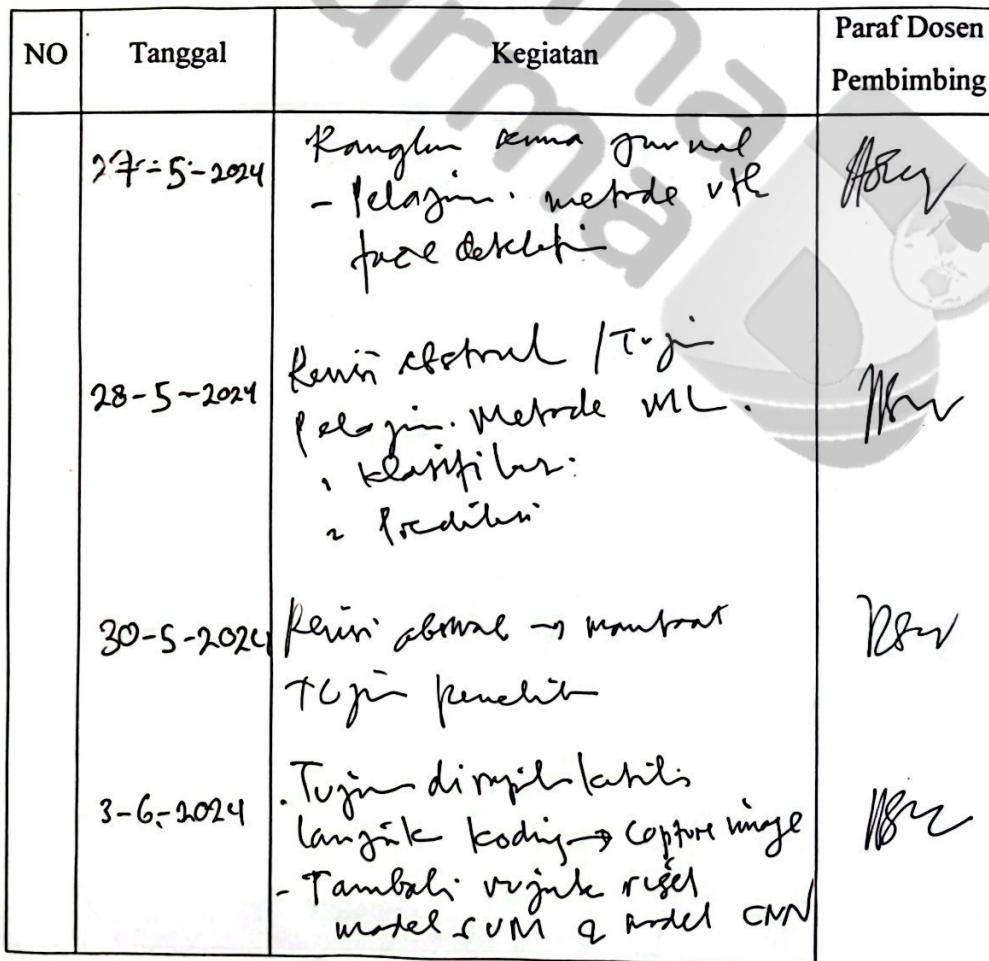 NO Tanggal Kegiatan Paraf Dosen
Pembimbing
27-5-2024 jurnal
- Pelajari metode utk
face deteksi
28-5-2024 Revisi abstrak / Tujuan
Pelajari Metode ML.
klasifikasi
Prediksi
30-5-2024 Revisi abstrak → manfaat
Tujuan penelitian
3-6-2024 . Tujuan
lanjut koding → capture image
- Tambah rujuk riset
model SVM & model CNN